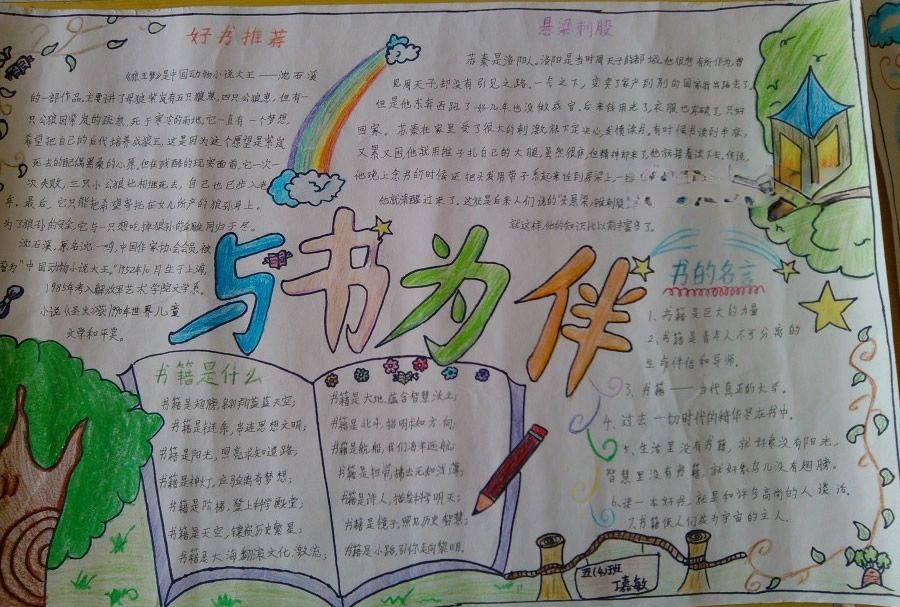 好书推荐
《狼王梦》是中国动物小说大王——沈石溪
的一部作品,主要讲了母狼紫岚有五只狼崽,四只公狼崽,但有一
只公狼因紫岚的疏忽,死于寒冷的雨地,它一直有一个梦想,
希望把自己的后代培养成狼王,这是因为这个愿望是紫岚
死去的配偶黑桑的心愿,但在残酷的现实面前,它一次一
次失败,三只小公狼也相继死去,自己也已步入老
年,最后,它只能把希望寄托在女儿所产的狼孙身上,
为了狼孙的安全,它与一只想吃掉狼孙的金雕同归于尽。
沈石溪,原名沈一鸣,中国作家协会会员,被
誉为"中国动物小说大王。"1952年10月生于上海,
1985年考入解放军艺术学院文学系。
小说《圣火》获1990年世界儿童
文学和平奖。
悬梁刺股
苏秦是洛阳人,洛阳是当时周天子的都城,他很想有所作为,曾
见周天子,却没有引见之路,一气之下,变卖了家产到别的国家找出路去了。
但是他东奔西跑了好几年也没做成官,后来钱用光了,衣服也穿破了,只好
回家。苏秦在家里受了很大的刺激,就下定决心,发愤读书,有时候书读到半夜,
又累又困,他就用锥子扎自己的大腿,虽然很疼,但精神却来了,他就接着读下去。传说,
他晚上念书的时候还把头发用带子系起来拴到房梁上,一
他就清醒过来了。这就是后来人们说的"头悬梁,锥刺股"
就这样,他的知识比以前丰富多了。
与书为伴
书籍是什么
书籍是翅膀,翱翔蓝蓝天空;
书籍是链条,串连思想文明;
书籍是阳光,照亮求知道路;
书籍是神灯,应验离奇梦想;
书籍是阶梯,登上科学殿堂;
书籍是天空,镶嵌历史繁星;
书籍是大海,翻滚文化激流;
书籍是大地,蕴含智慧沃土;
书籍是北斗,指明求知方向;
书籍是航船,我们海洋远航;
书籍是诗人,描绘科学明天;
书籍是镜子,照见历史智慧;
书籍是小路,引你走向黎明。
书的名言
1、书籍是巨大的力量
2、书籍是青年人不可分离的
生命伴侣和导师。
3、书籍——当代真正的大学。
4、过去一切时代的精华尽在书中。
5、生活里没有书籍,就好象没有阳光,
智慧里没有书籍,就好象鸟儿没有翅膀。
6、读一本好书,就是和许多高尚的人谈话。
7、书籍使人们成为宇宙的主人。
五(4)班
丁嘉敏